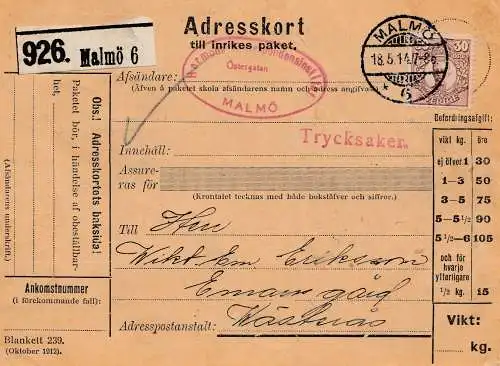 Adresskort
till inrikes paket.
926. Malmö 6
MALMÖ
18.5.14.7-8
6
30
Afsändare:
(Äfven å paketet skola afsändarens namn och adress angifvas)
Östergatan
MALMÖ
Trycksaker.
Innehåll:
Assure-
ras för
(Krontalet tecknas med både bokstäfver och siffror.)
Till Herr
Wikt Em Erikson
Emaus gård
Västerås
Adresspostanstalt:
Obs.! Adresskortets baksida!
Paketet bör, i händelse af obeställbar-
het,
(Afsändarens underskrift.)
Ankomstnummer
(i förekommande fall):
Blankett 239.
(Oktober 1912).
Befordringsafgift:
vikt kg. öre
ej öfver 1 30
1–3 50
3–5 75
5–5½ 90
5½–6 105
och för
hvarje
ytterligare
½ kg. 15
Vikt:
kg.